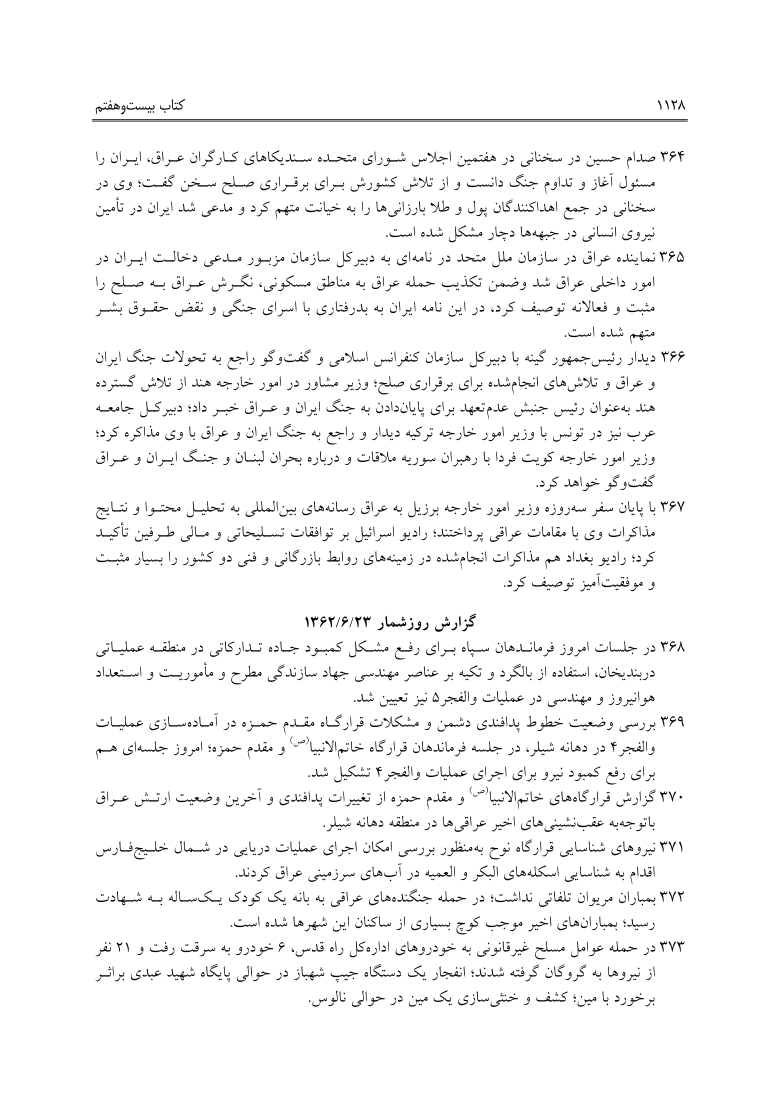 ۱۱۲۸ کتاب بیست‌وهفتم
۳۶۴ صدام حسین در سخنانی در هفتمین اجلاس شورای متحده سندیکاهای کارگران عراق، ایران را
مسئول آغاز و تداوم جنگ دانست و از تلاش کشورش برای برقراری صلح سخن گفت؛ وی در
سخنانی در جمع اهداکنندگان پول و طلا بارزانی‌ها را به خیانت متهم کرد و مدعی شد ایران در تأمین
نیروی انسانی در جبهه‌ها دچار مشکل شده است.
۳۶۵ نماینده عراق در سازمان ملل متحد در نامه‌ای به دبیرکل سازمان مزبور مدعی دخالت ایران در
امور داخلی عراق شد وضمن تکذیب حمله عراق به مناطق مسکونی، نگرش عراق به صلح را
مثبت و فعالانه توصیف کرد، در این نامه ایران به بدرفتاری با اسرای جنگی و نقض حقوق بشر
متهم شده است.
۳۶۶ دیدار رئیس‌جمهور گینه با دبیرکل سازمان کنفرانس اسلامی و گفت‌وگو راجع به تحولات جنگ ایران
و عراق و تلاش‌های انجام‌شده برای برقراری صلح؛ وزیر مشاور در امور خارجه هند از تلاش گسترده
هند به‌عنوان رئیس جنبش عدم‌تعهد برای پایان‌دادن به جنگ ایران و عراق خبر داد؛ دبیرکل جامعه
عرب نیز در تونس با وزیر امور خارجه ترکیه دیدار و راجع به جنگ ایران و عراق با وی مذاکره کرد؛
وزیر امور خارجه کویت فردا با رهبران سوریه ملاقات و درباره بحران لبنان و جنگ ایران و عراق
گفت‌وگو خواهد کرد.
۳۶۷ با پایان سفر سه‌روزه وزیر امور خارجه برزیل به عراق رسانه‌های بین‌المللی به تحلیل محتوا و نتایج
مذاکرات وی با مقامات عراقی پرداختند؛ رادیو اسرائیل بر توافقات تسلیحاتی و مالی طرفین تأکید
کرد؛ رادیو بغداد هم مذاکرات انجام‌شده در زمینه‌های روابط بازرگانی و فنی دو کشور را بسیار مثبت
و موفقیت‌آمیز توصیف کرد.
گزارش روزشمار ۱۳۶۲/۶/۲۳
۳۶۸ در جلسات امروز فرماندهان سپاه برای رفع مشکل کمبود جاده تدارکاتی در منطقه عملیاتی
دربندیخان، استفاده از بالگرد و تکیه بر عناصر مهندسی جهاد سازندگی مطرح و مأموریت و استعداد
هوانیروز و مهندسی در عملیات والفجر۵ نیز تعیین شد.
۳۶۹ بررسی وضعیت خطوط پدافندی دشمن و مشکلات قرارگاه مقدم حمزه در آماده‌سازی عملیات
والفجر۴ در دهانه شیلر، در جلسه فرماندهان قرارگاه خاتم‌الانبیا(ص) و مقدم حمزه؛ امروز جلسه‌ای هم
برای رفع کمبود نیرو برای اجرای عملیات والفجر۴ تشکیل شد.
۳۷۰ گزارش قرارگاه‌های خاتم‌الانبیا(ص) و مقدم حمزه از تغییرات پدافندی و آخرین وضعیت ارتش عراق
باتوجه‌به عقب‌نشینی‌های اخیر عراقی‌ها در منطقه دهانه شیلر.
۳۷۱ نیروهای شناسایی قرارگاه نوح به‌منظور بررسی امکان اجرای عملیات دریایی در شمال خلیج‌فارس
اقدام به شناسایی اسکله‌های البکر و العمیه در آب‌های سرزمینی عراق کردند.
۳۷۲ بمباران مریوان تلفاتی نداشت؛ در حمله جنگنده‌های عراقی به بانه یک کودک یک‌ساله به شهادت
رسید؛ بمباران‌های اخیر موجب کوچ بسیاری از ساکنان این شهرها شده است.
۳۷۳ در حمله عوامل مسلح غیرقانونی به خودروهای اداره‌کل راه قدس، ۶ خودرو به سرقت رفت و ۲۱ نفر
از نیروها به گروگان گرفته شدند؛ انفجار یک دستگاه جیپ شهباز در حوالی پایگاه شهید عبدی براثر
برخورد با مین؛ کشف و خنثی‌سازی یک مین در حوالی نالوس.